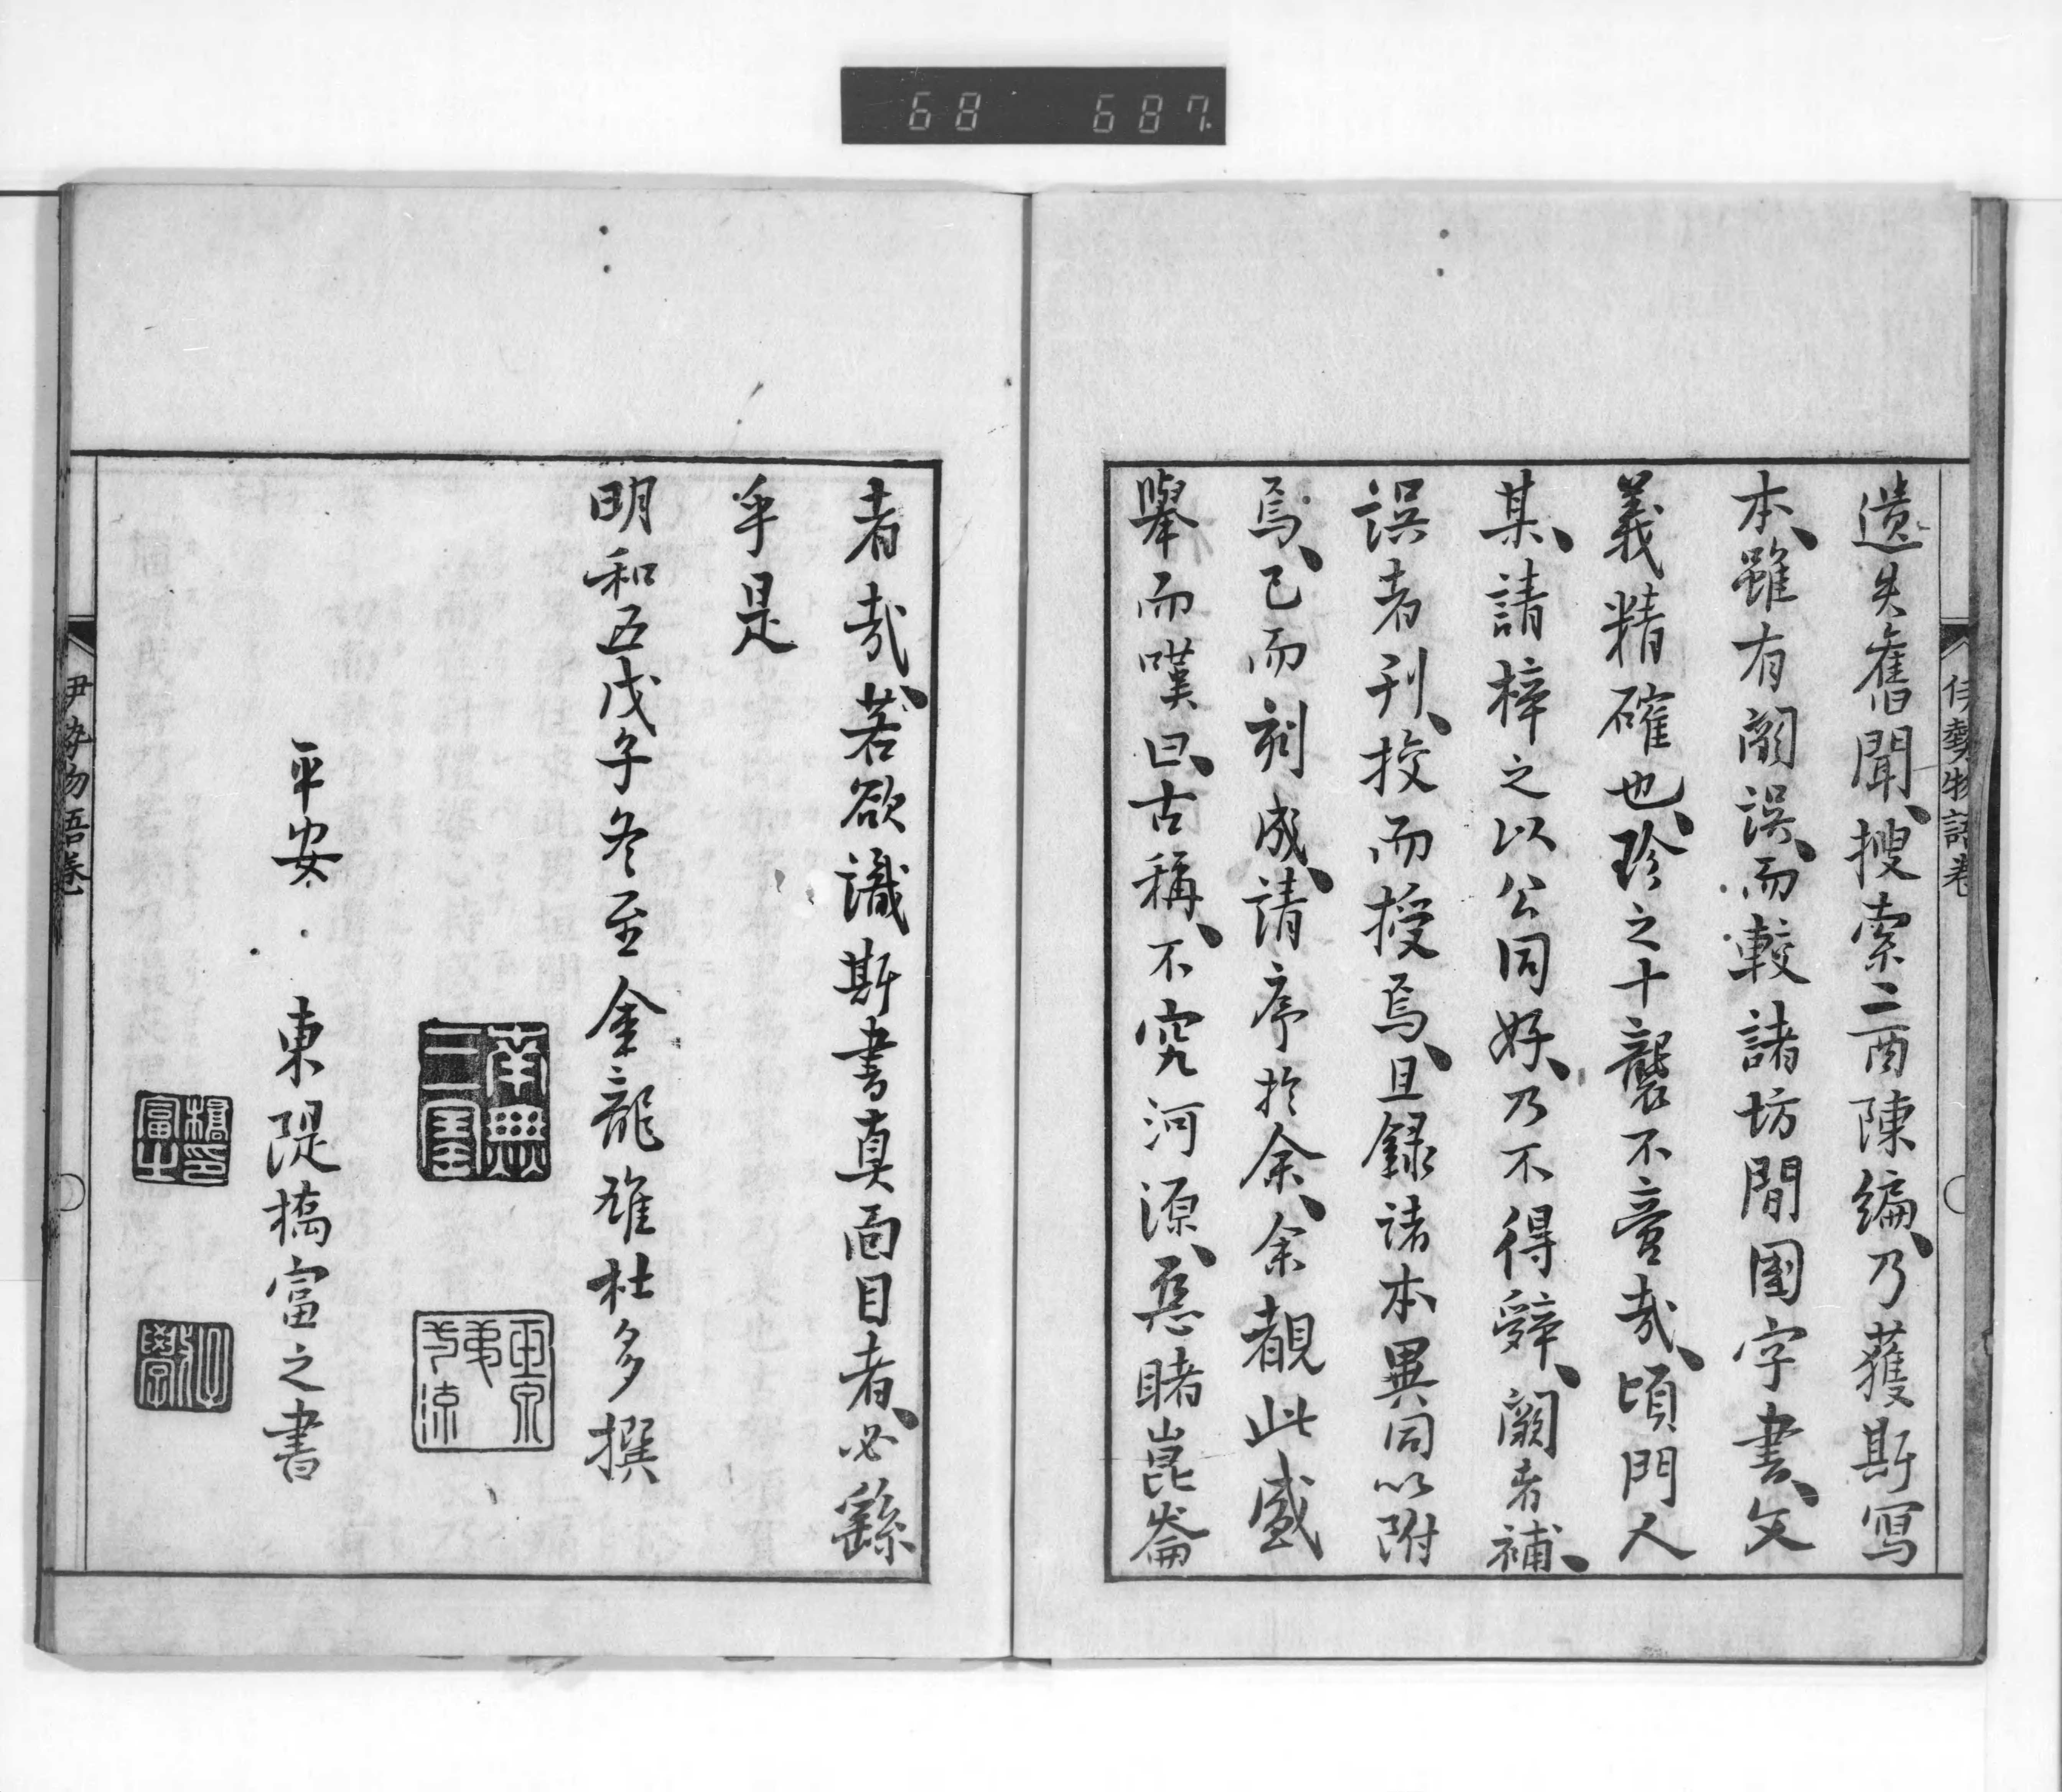 68 687.
伊勢物語巻
遺失舊聞、搜索二酉陳編、乃獲斯寫
本、雖有闕誤、而較諸坊間圖字書、文
義精確也、珍之十襲不啻哉、頃門人
某、請梓之以公同好、乃不得辭、闕者補、
誤者刊、挍而授焉、且録諸本異同以附
焉、已而刻成、請序於余、余覩此盛
擧而嘆曰、古稱、不究河源、惡睹崑崙
者哉、若欲識斯書真面目者、必繇
乎是
明和五戊子冬至金龍雄杜多撰
平安 東隄橋富之書
橋印富之